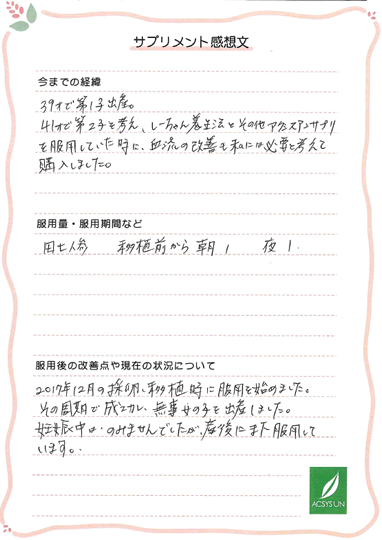 サプリメント感想文
今までの経緯
39才で第1子出産。
41才で第2子を考え、しーちゃん養生法とその他アクシスアンサプリ
を服用していた時に、血流の改善も私には必要と考えて
購入しました。
服用量・服用期間など
田七人参 移植前から 朝1 夜1.
服用後の改善点や現在の状況について
2017年12月の採卵、移植時に服用を始めました。
その周期で成功し、無事女の子を出産しました。
妊娠中は のみませんでしたが、産後にまた服用して
います。
ACSYSUN